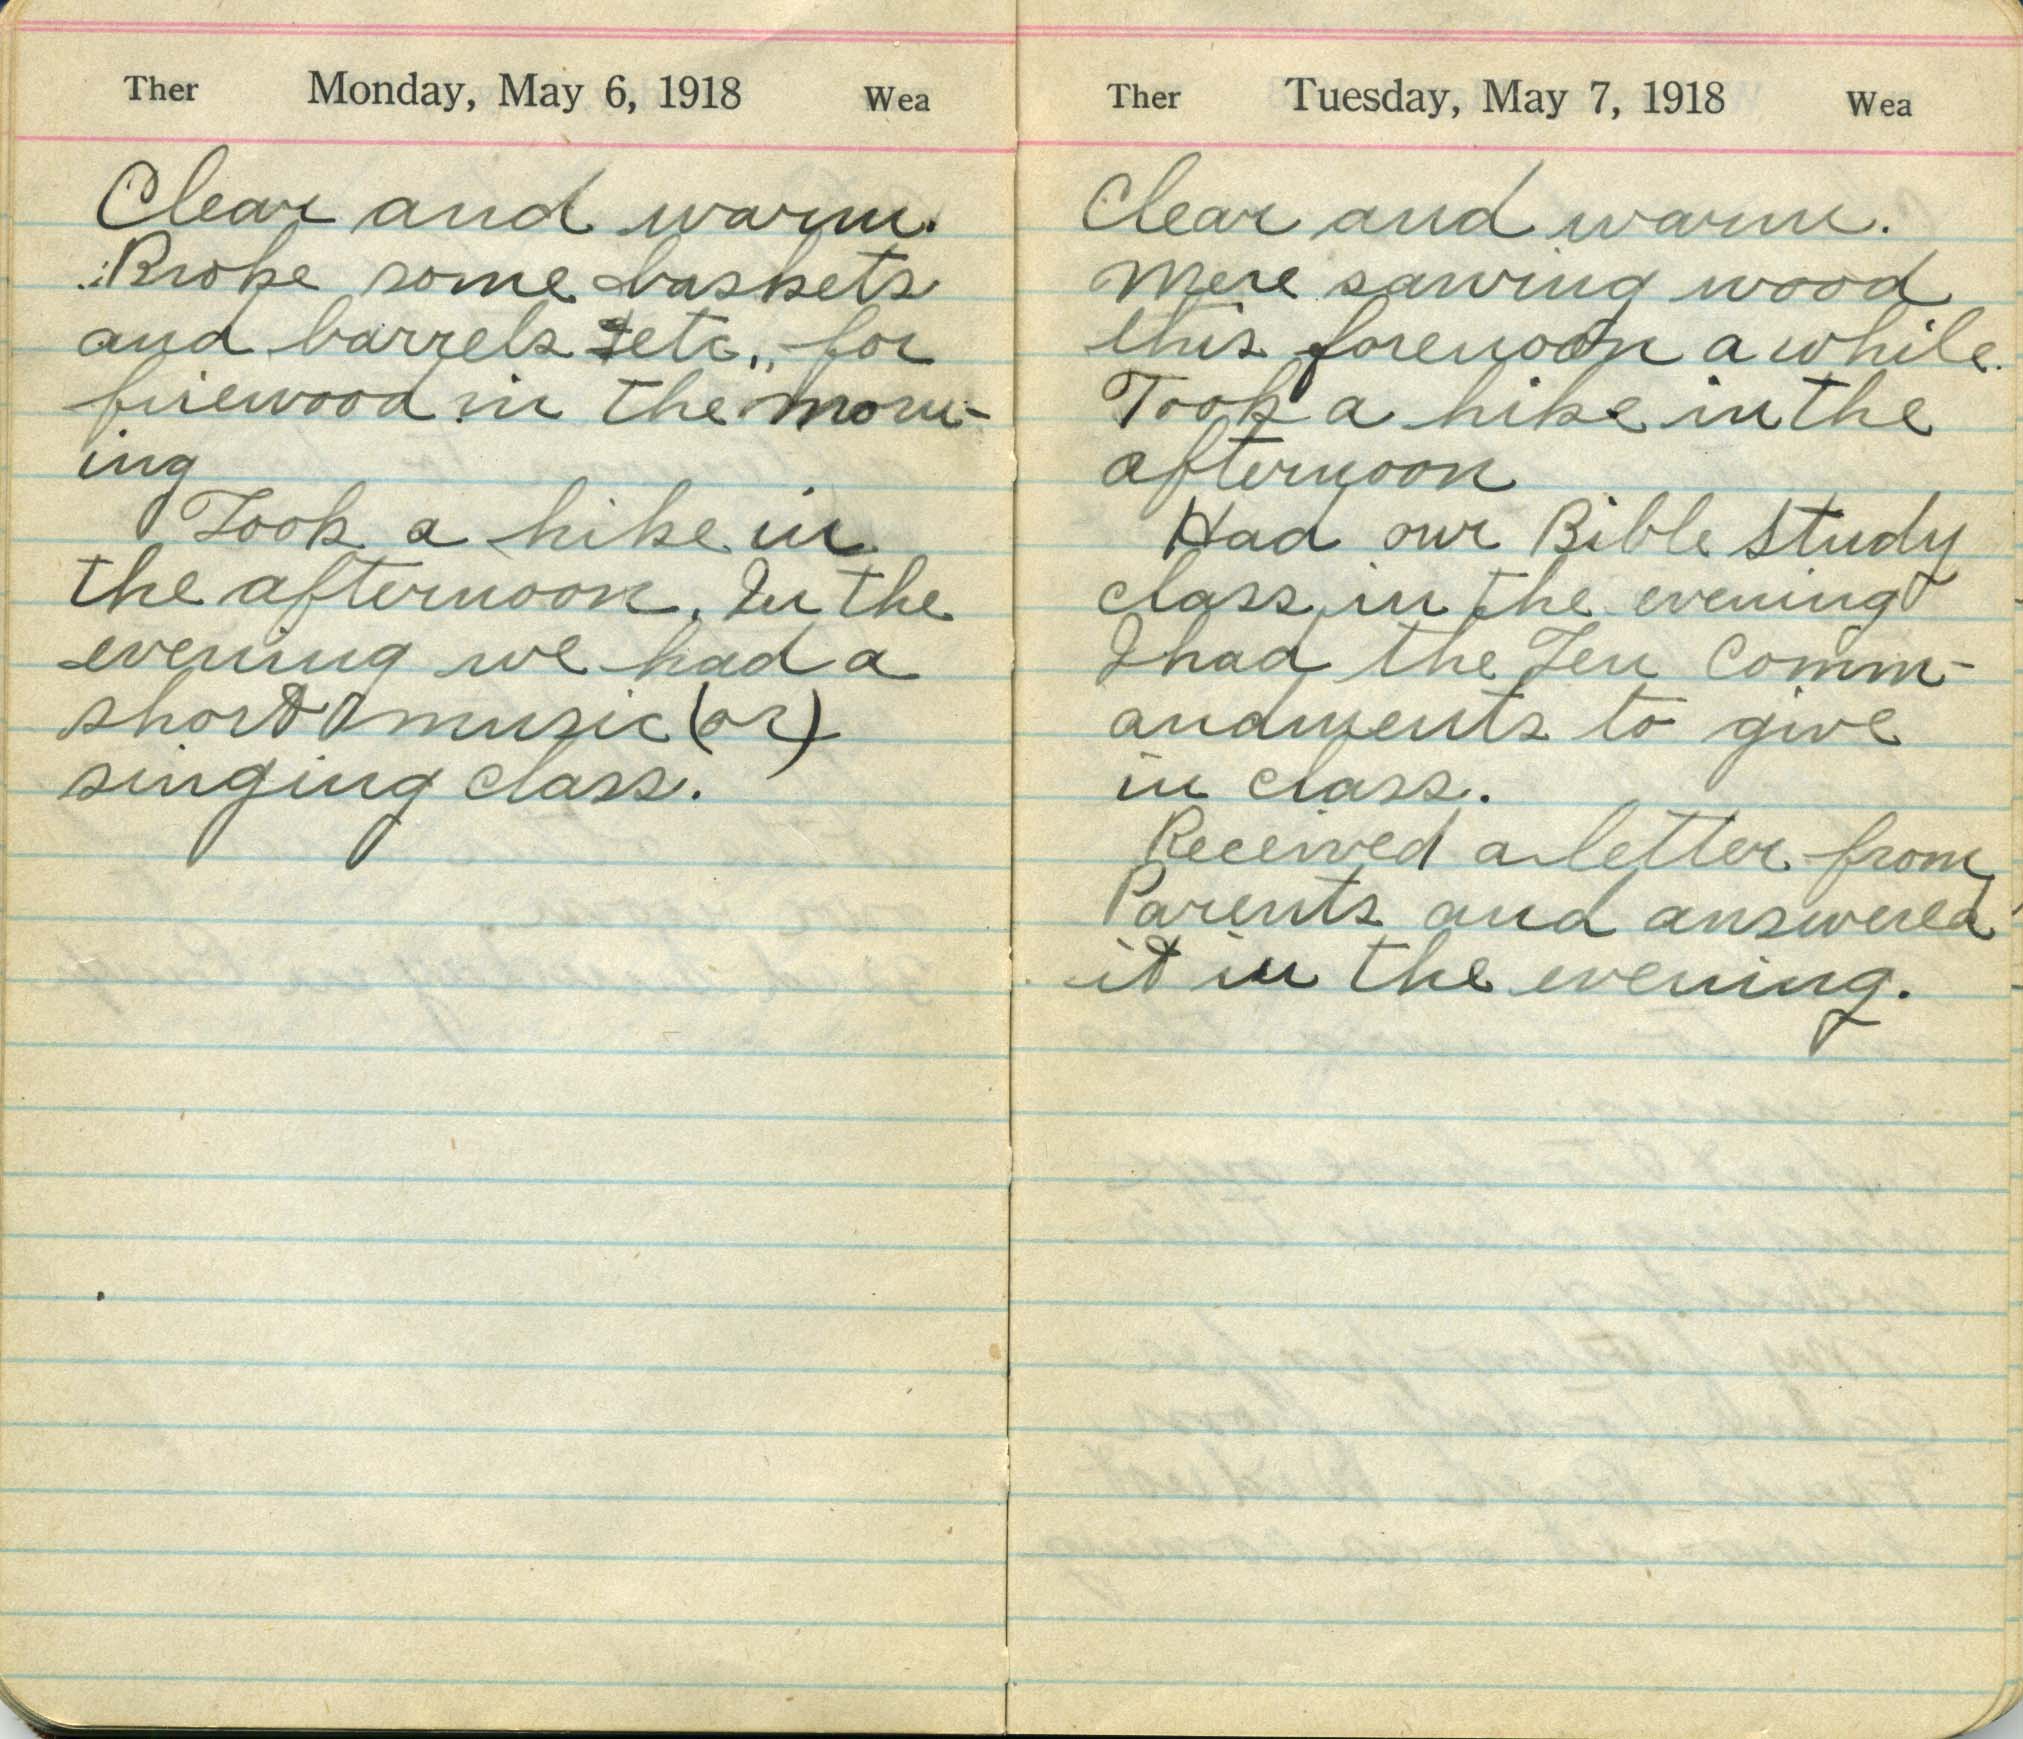 Ther Monday, May 6, 1918 Wea
Clear and warm.
Broke some baskets
and barrels etc., for
firewood in the morn-
ing
Took a hike in
the afternoon. In the
evening we had a
short music (or)
singing class.
Ther Tuesday, May 7, 1918 Wea
Clear and warm.
Were sawing wood
this forenoon a while.
Took a hike in the
afternoon
Had our Bible Study
class in the evening
I had the Ten Comm-
andments to give
in class.
Received a letter from
Parents and answered
it in the evening.